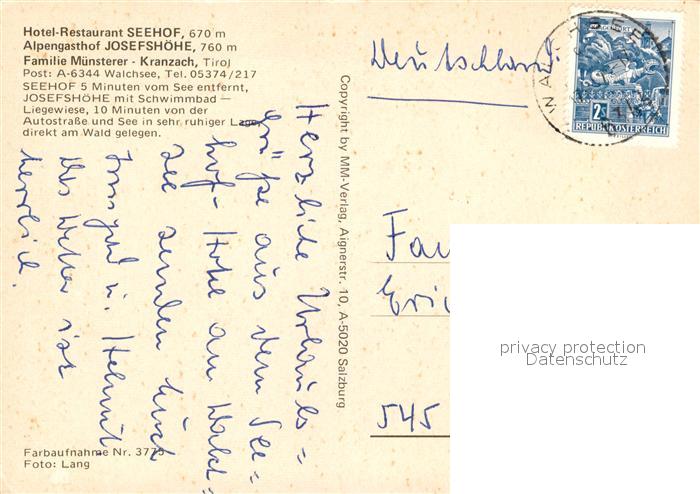 Hotel-Restaurant SEEHOF, 670 m
Alpengasthof JOSEFSHÖHE, 760 m
Familie Münsterer - Kranzach, Tirol
Post: A-6344 Walchsee, Tel. 05374/217
SEEHOF 5 Minuten vom See entfernt,
JOSEFSHÖHE mit Schwimmbad —
Liegewiese, 10 Minuten von der
Autostraße und See in sehr ruhiger Lage,
direkt am Wald gelegen.
Herzliche Urlaubs=
grüße aus dem See=
hof-Höhe am Walch=
see senden Euch
Irmgard u. Helmut.
Das Wetter ist
herrlich.
Farbaufnahme Nr. 3775
Foto: Lang
Copyright by MM-Verlag, Aignerstr. 10, A-5020 Salzburg
Deutschland
WALCHSEE
2S
REPUBLIK ÖSTERREICH
Fa
Eri
545
privacy protection
Datenschutz